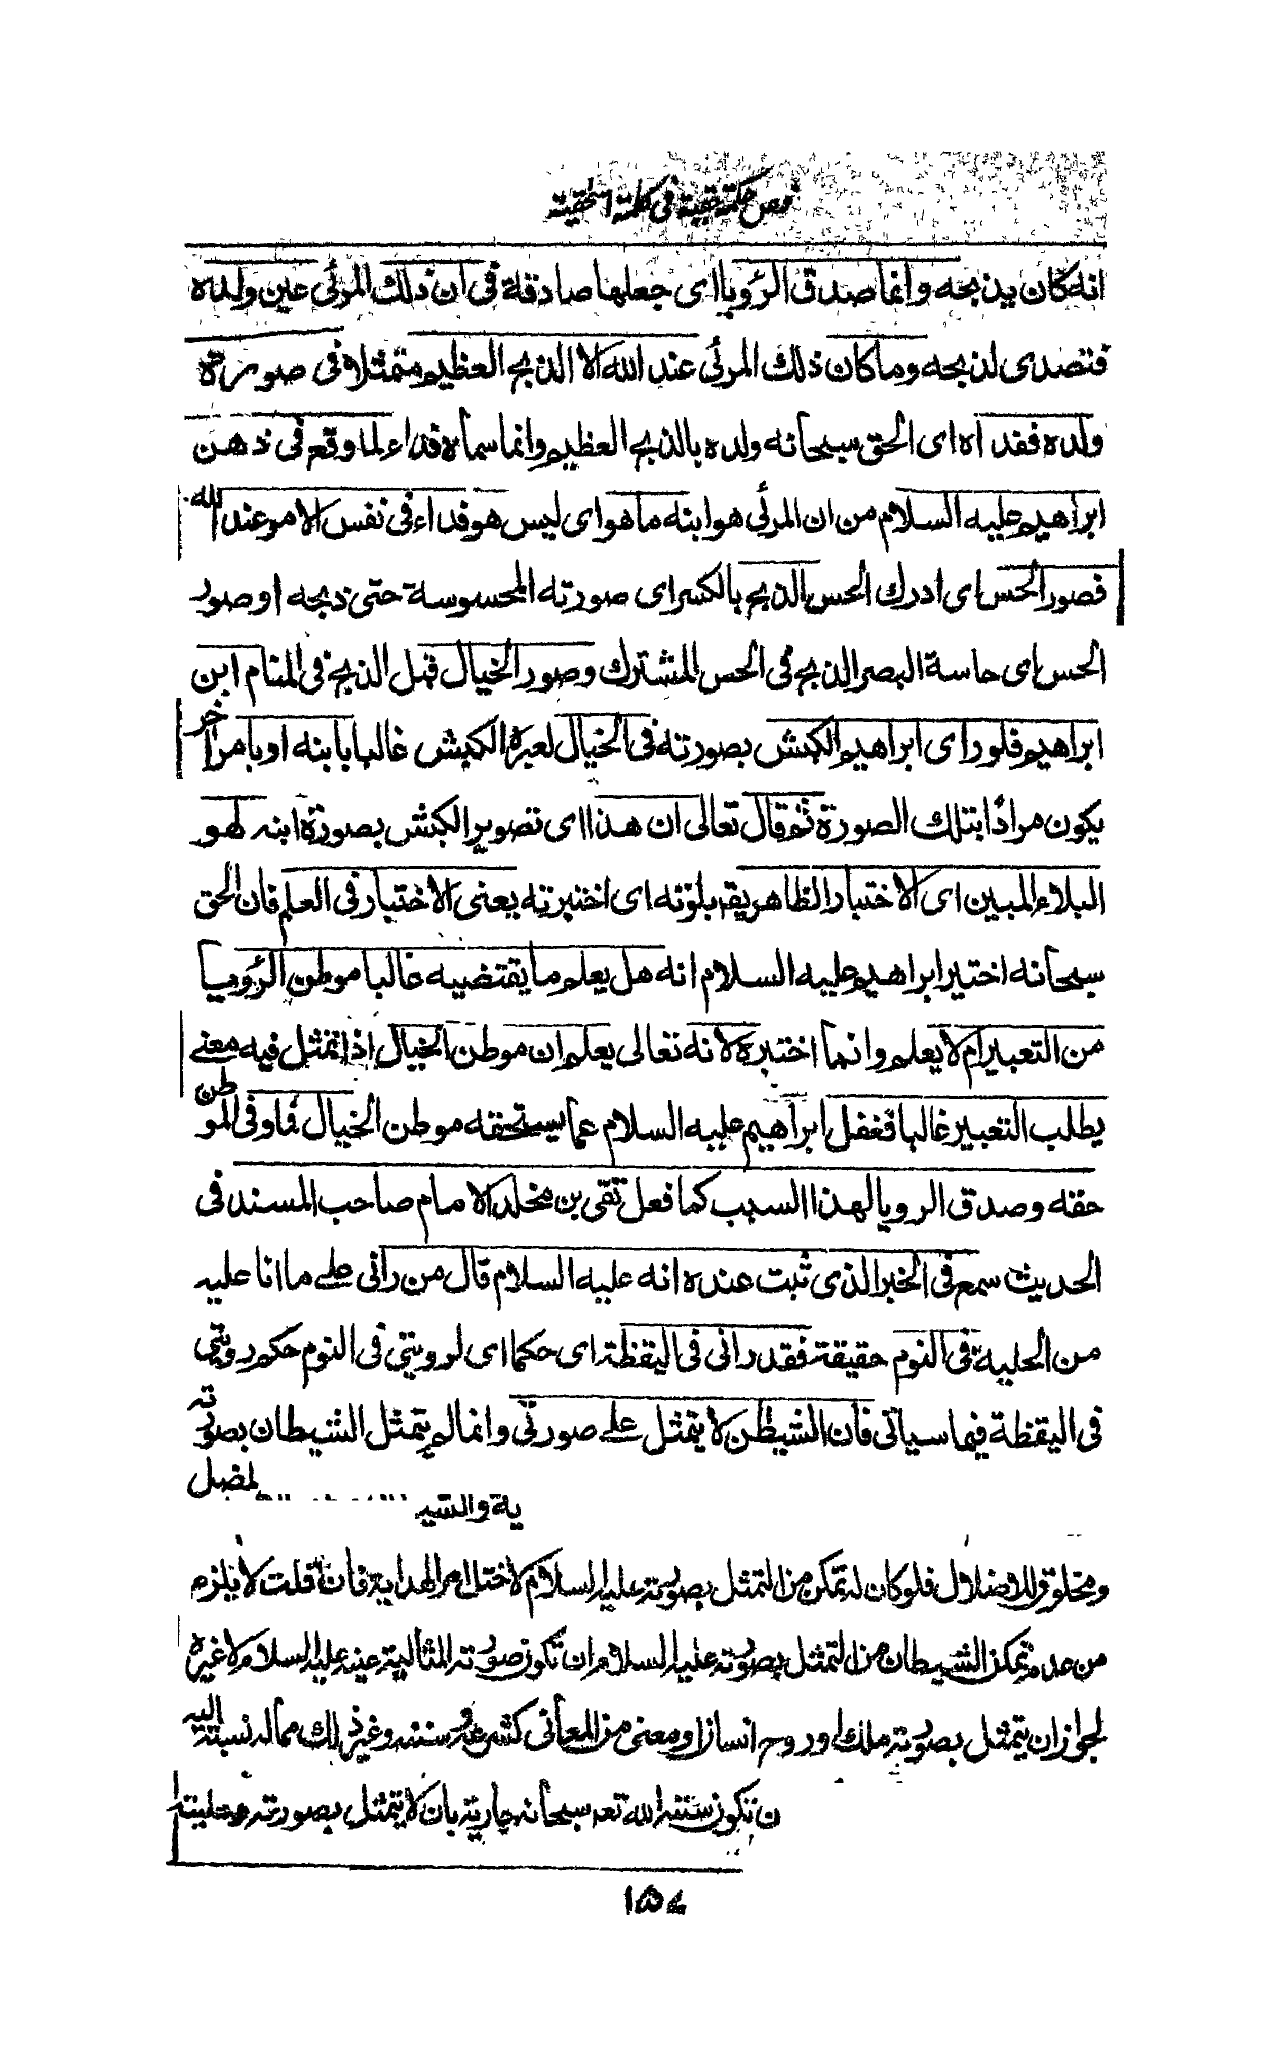 فص حكمة حقية في كلمة اسحقية
انه كان يذبحه وانما صدق الرؤيا اى جعلها صادقة فى ان ذلك المرئى عين ولده
فتصدى لذبحه وما كان ذلك المرئى عند الله الا الذبح العظيم متمثلا فى صورة
ولده ففداه اى الحق سبحانه ولده بالذبح العظيم وانما سماه فداء لما وقع فى ذهن
ابراهيم عليه السلام من ان المرئى هو ابنه ما هو اى ليس هو فداء فى نفس الامر عند الله
فصور الحس اى ادرك الحس الذبح بالكسر اى صورته المحسوسة حتى ذبحه او صور
الحس اى حاسة البصر الذبح فى الحس المشترك وصور الخيال قبل الذبح فى المنام ابن
ابراهيم فلو راى ابراهيم الكبش بصورته فى الخيال لعبره الكبش غالبا بابنه او بامر اخر
يكون مرادا بتلك الصورة ثم قال تعالى ان هذا اى تصوير الكبش بصورة ابنه لهو
البلاء المبين اى الاختبار الظاهر يقه بلوته اى اختبرته يعنى الاختبار فى العلم فان الحق
سبحانه اختبر ابراهيم عليه السلام انه هل يعلم ما يقتضيه غالبا موطن الرؤيا
من التعبير ام لا يعلم وانما اختبره لانه تعالى يعلم ان موطن الخيال اذا تمثل فيه معنى
يطلب التعبير غالبا فغفل ابراهيم عليه السلام عما يستحقه موطن الخيال فما وفى الموطن
حقه وصدق الرويا لهذا السبب كما فعل تقى بن مخلد الامام صاحب المسند فى
الحديث سمع فى الخبر الذى ثبت عنده انه عليه السلام قال من رانى على ما انا عليه
من الحلية فى النوم حقيقة فقد رانى فى اليقظة اى حكما اى لرويتى فى النوم حكم رويتى
فى اليقظة فيما سياتى فان الشيطن لا يتمثل على صورتى وانما لم يتمثل الشيطان بصورته
لمضل
ية والشي
ومخلوق للاضلال فلو كان له تمكن من التمثل بصورته عليه السلام لاختل امر الهداية فان قلت لا يلزم
من عدم تمكن الشيطان من التمثل بصورته عليه السلام ان تكون صورته المثالية عينه عليه السلام لا غيره
لجواز ان يتمثل بصورته ملك او روح انسان او معنى من المعانى كشرعه و سننه وغير ذلك مما له نسبة اليه
ن تكون سنة الله تعه سبحانه جارية بان لا يتمثل بصورته